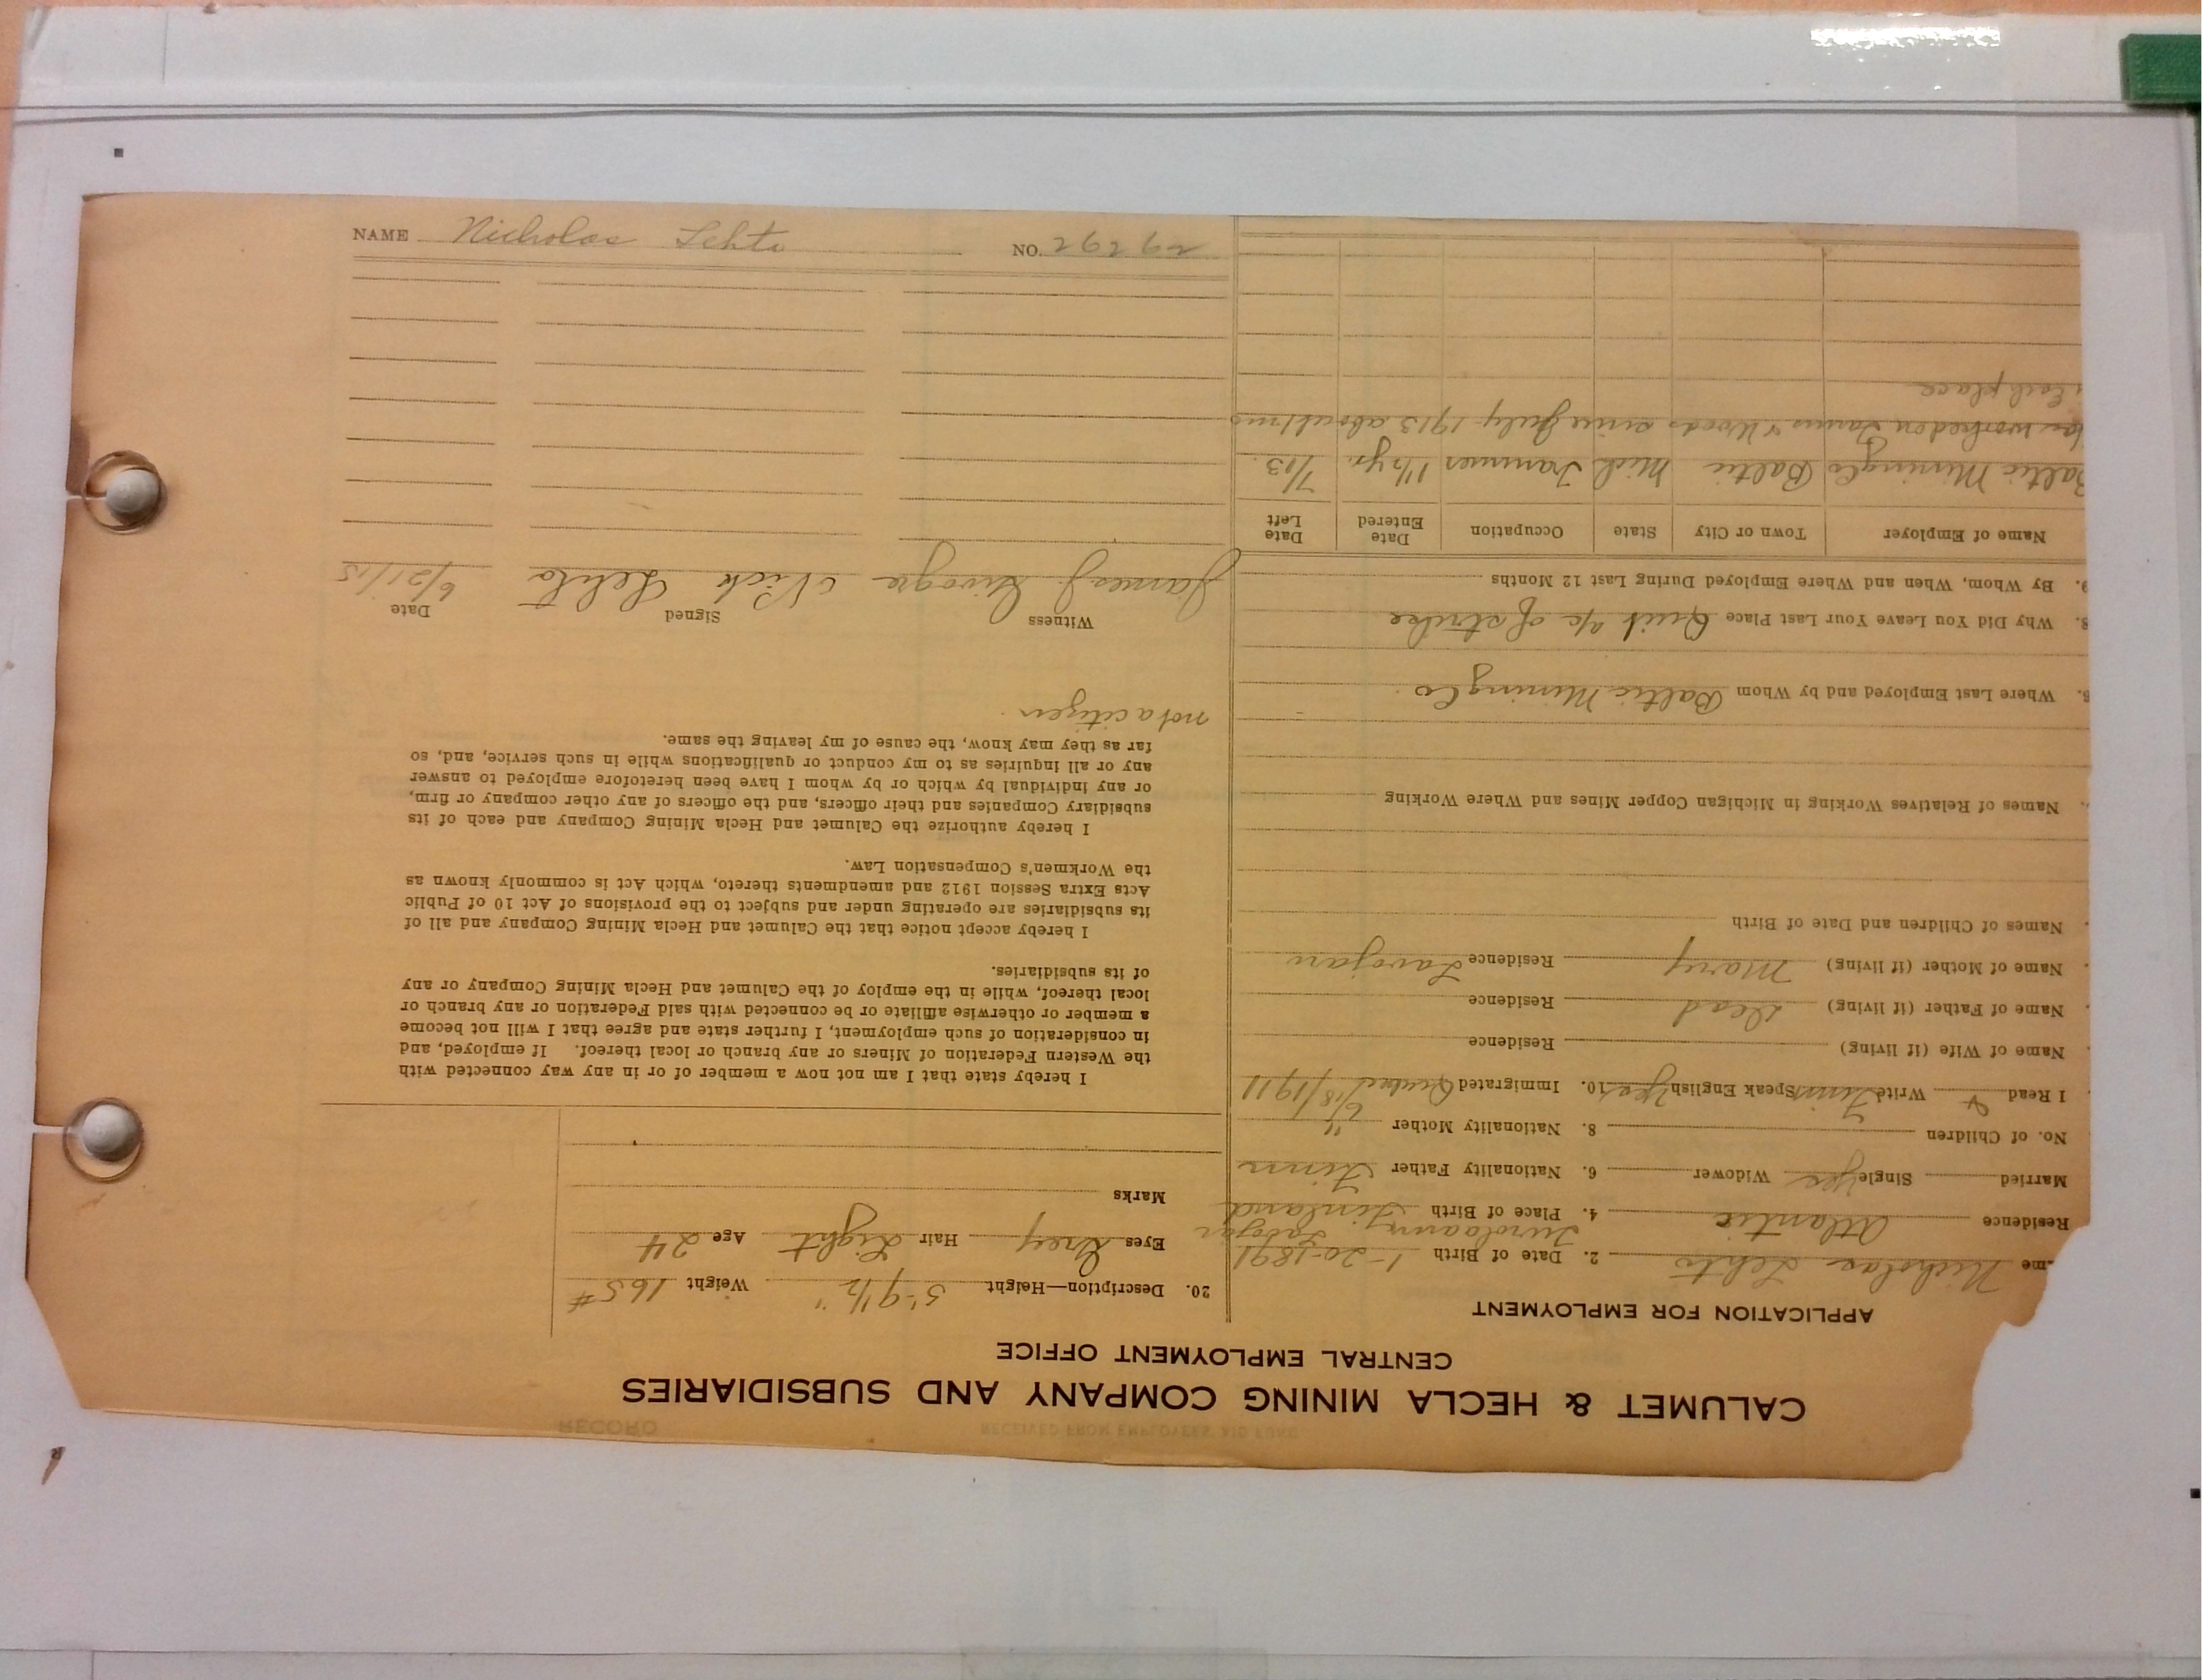 CALUMET & HECLA MINING COMPANY AND SUBSIDIARIES
CENTRAL EMPLOYMENT OFFICE
APPLICATION FOR EMPLOYMENT
me Nicholas Lehto 2. Date of Birth 1-20-1891
Residence Atlantic 4. Place of Birth Finland
Married Single Yes Widower 6. Nationality Father Finn
No. of Children 8. Nationality Mother "
I Read & Write Finn Speak English Yes 10. Immigrated Quebec 6/18/1911
Name of Wife (if living) Residence
Name of Father (if living) Dead Residence
Name of Mother (if living) Mary Residence
Names of Children and Date of Birth
Names of Relatives Working in Michigan Copper Mines and Where Working
Where Last Employed and by Whom Baltic Mining Co.
Why Did You Leave Your Last Place Quit a/c of strike
By Whom, When and Where Employed During Last 12 Months
Name of Employer Town or City State Occupation Date Entered Date Left
Baltic Mining Co Baltic Mich Trammer 1 1/2 yr. 7/13.
worked on Farms & Woods since July 1913 about 1 mo
each place
20. Description—Height 5'-9 1/2" Weight 165#
Eyes Grey Hair Light Age 24
Marks
I hereby state that I am not now a member of or in any way connected with
the Western Federation of Miners or any branch or local thereof. If employed, and
in consideration of such employment, I further state and agree that I will not become
a member or otherwise affiliate or be connected with said Federation or any branch or
local thereof, while in the employ of the Calumet and Hecla Mining Company or any
of its subsidiaries.
I hereby accept notice that the Calumet and Hecla Mining Company and all of
its subsidiaries are operating under and subject to the provisions of Act 10 of Public
Acts Extra Session 1912 and amendments thereto, which Act is commonly known as
the Workmen's Compensation Law.
I hereby authorize the Calumet and Hecla Mining Company and each of its
subsidiary Companies and their officers, and the officers of any other company or firm,
or any individual by which or by whom I have been heretofore employed to answer
any or all inquiries as to my conduct or qualifications while in such service, and, so
far as they may know, the cause of my leaving the same.
not a citizen.
Witness Signed Date
James J. Nick Lehto 6/21/15
NAME Nicholas Lehto NO. 29262
RECORD
RECEIVED FROM EMPLOYEES' AID FUND